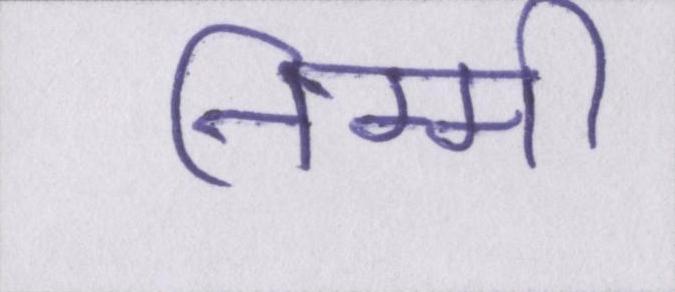 निम्मी